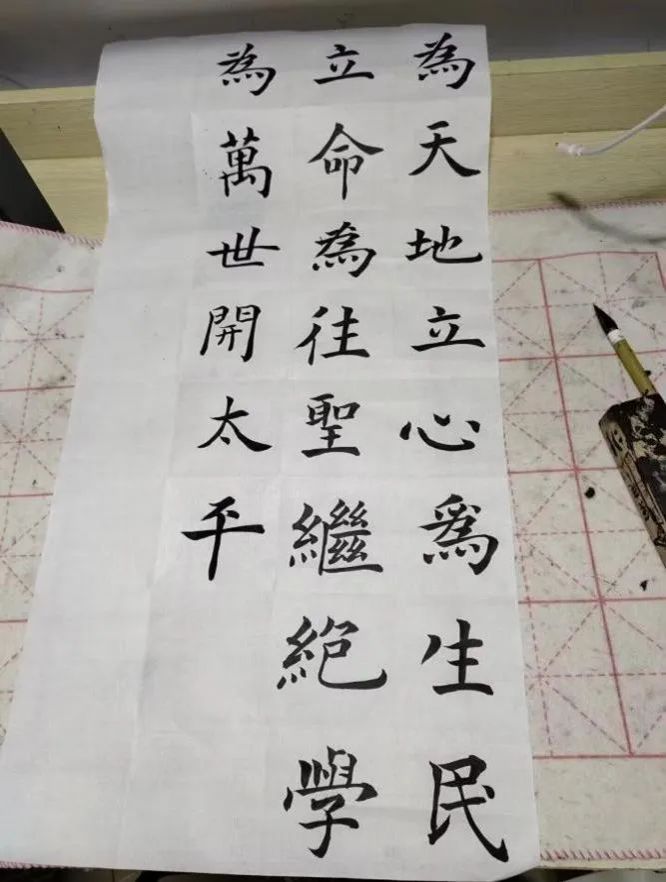 為天地立心爲生民
立命為往聖繼絕學
為萬世開太平